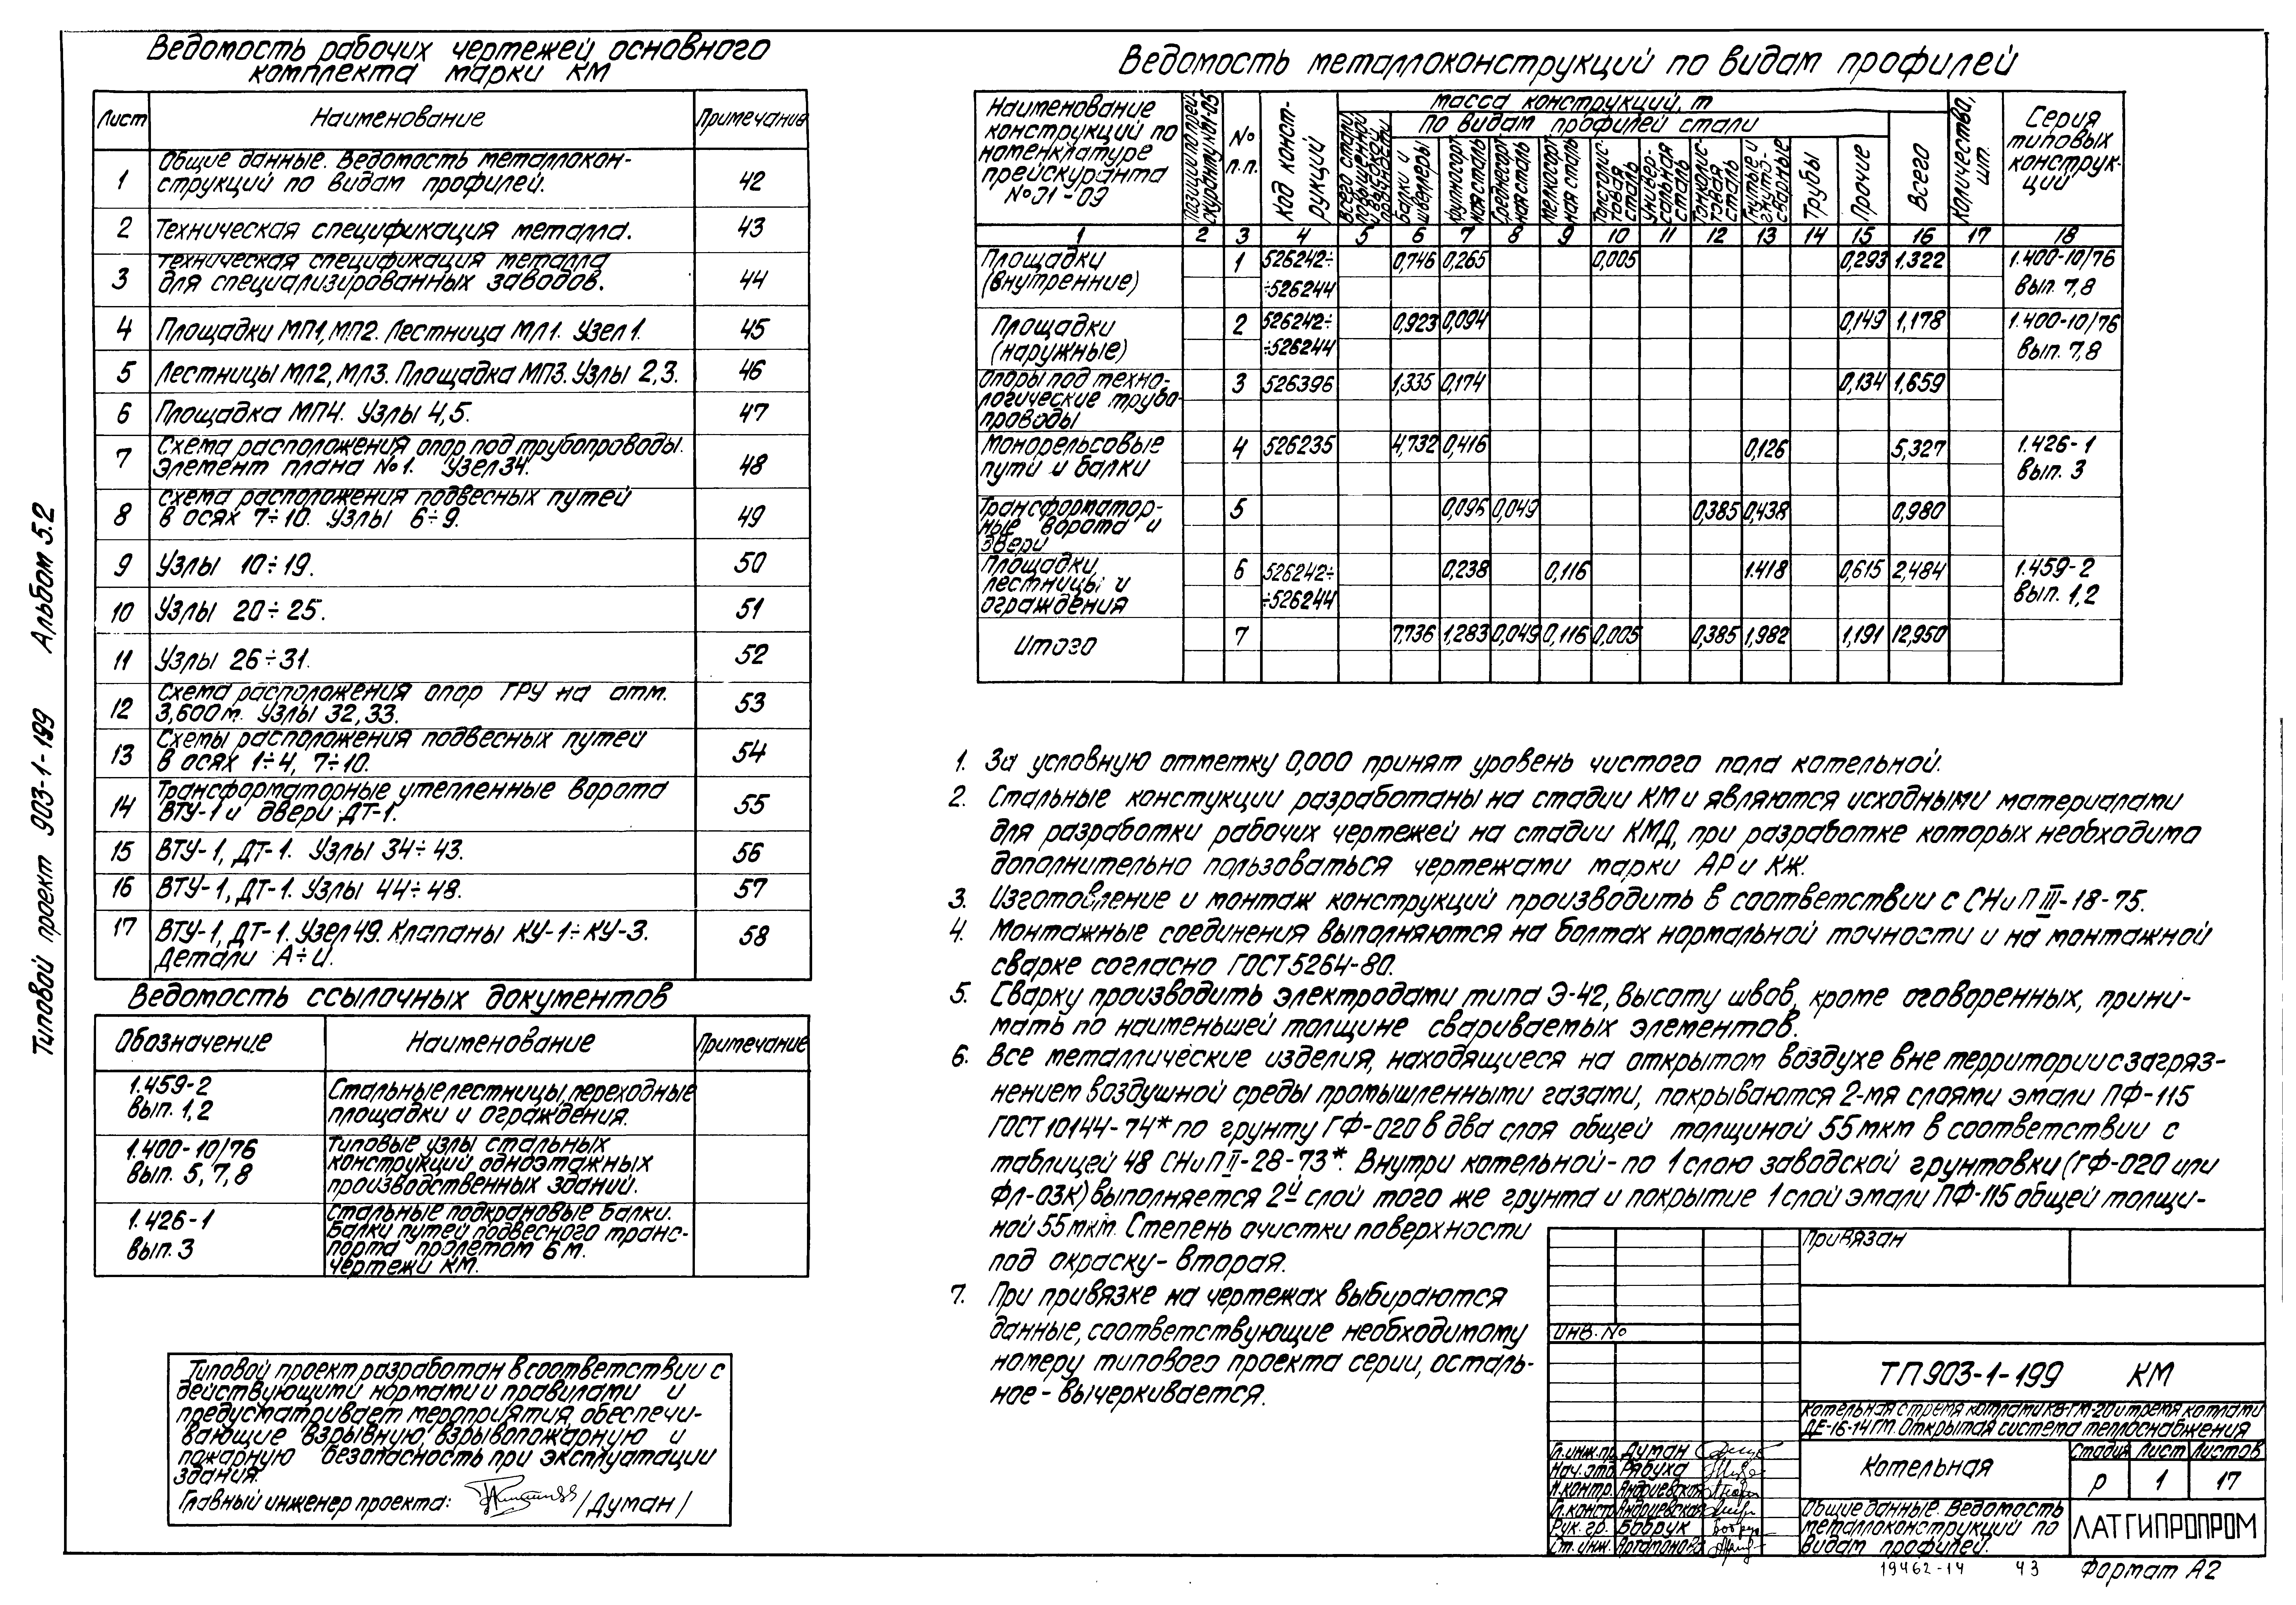 Ведомость рабочих чертежей основного
комплекта марки КМ
Лист Наименование Примечание
1 Общие данные. Ведомость металлокон-
струкций по видам профилей. 42
2 Техническая спецификация металла. 43
3 Техническая спецификация металла
для специализированных заводов. 44
4 Площадки МП1, МП2. Лестница МЛ1. Узел 1. 45
5 Лестницы МЛ2, МЛ3. Площадка МП3. Узлы 2,3. 46
6 Площадка МП4. Узлы 4,5. 47
7 Схема расположения опор под трубопроводы.
Элемент плана №1. Узел 34. 48
8 Схема расположения подвесных путей
в осях 7÷10. Узлы 6÷9. 49
9 Узлы 10÷19. 50
10 Узлы 20÷25. 51
11 Узлы 26÷31. 52
12 Схема расположения опор ГРУ на отм.
3,600м. Узлы 32,33. 53
13 Схемы расположения подвесных путей
в осях 1÷4, 7÷10. 54
14 Трансформаторные утепленные ворота
ВТУ-1 и двери ДТ-1. 55
15 ВТУ-1, ДТ-1. Узлы 34÷43. 56
16 ВТУ-1, ДТ-1. Узлы 44÷48. 57
17 ВТУ-1, ДТ-1. Узел 49. Клапаны КУ-1÷КУ-3.
Детали А÷И. 58
Ведомость ссылочных документов
Обозначение Наименование Примечание
1.459-2
вып. 1,2
Стальные лестницы, переходные
площадки и ограждения.
1.400-10/76
вып. 5,7,8
Типовые узлы стальных
конструкций одноэтажных
производственных зданий.
1.426-1
вып. 3
Стальные подкрановые балки.
Балки путей подвесного транс-
порта пролетом 6м.
Чертежи КМ.
Типовой проект разработан в соответствии с
действующими нормами и правилами и
предусматривает мероприятия, обеспечи-
вающие взрывную, взрывопожарную и
пожарную безопасность при эксплуатации
здания.
Главный инженер проекта: /Думан/
Типовой проект 903-1-199 Альбом 5.2
Ведомость металлоконструкций по видам профилей
Наименование
конструкций по
номенклатуре
прейскуранта
№01-09
Позиции по прей-
скуранту №01-09
№
п.п.
Код конст-
рукций
Масса конструкций, т
Всего стали
повышенной
и высокой
прочности
По видам профилей стали
Балки и
швеллеры
Крупносорт-
ная сталь
Среднесорт-
ная сталь
Мелкосорт-
ная сталь
Толстолис-
товая
сталь
Универ-
сальная
сталь
Тонколис-
товая
сталь
Гнутые и
гнуто-
сварные
Трубы
Прочие
Всего
Количество,
шт.
Серия
типовых
конструк-
ций
1 2 3 4 5 6 7 8 9 10 11 12 13 14 15 16 17 18
Площадки 1 526242÷ 0,746 0,265 0,005 0,293 1.322 1.400-10/76
(внутренние) ÷526244 вып. 7,8
Площадки 2 526242÷ 0,923 0,094 0,149 1,178 1.400-10/76
(наружные) ÷526244 вып. 7,8
Опоры под техно- 3 526396 1,335 0,174 0,134 1,659
логические трубо-
проводы
Монорельсовые 4 526235 4,732 0,416 0,126 5,327 1.426-1
пути и балки вып. 3
Трансформатор- 5 0,096 0,049 0,385 0,438 0,980
ные ворота и
двери
Площадки, 6 526242÷ 0,238 0,116 1.418 0,615 2,484 1.459-2
лестницы и ÷526244 вып. 1,2
ограждения
Итого 7 7,736 1,283 0,049 0,116 0,005 0,385 1,982 1,191 12,950
1. За условную отметку 0,000 принят уровень чистого пола котельной.
2. Стальные констукции разработаны на стадии КМ и являются исходными материалами
для разработки рабочих чертежей на стадии КМД, при разработке которых необходимо
дополнительно пользоваться чертежами марки АР и КЖ.
3. Изготовление и монтаж конструкций производить в соответствии с СНиП III-18-75.
4. Монтажные соединения выполняются на болтах нормальной точности и на монтажной
сварке согласно ГОСТ 5264-80.
5. Сварку производить электродами типа Э-42, высоту швов, кроме оговоренных, прини-
мать по наименьшей толщине свариваемых элементов.
6. Все металлические изделия, находящиеся на открытом воздухе вне территории с загряз-
нением воздушной среды промышленными газами, покрываются 2-мя слоями эмали ПФ-115
ГОСТ 10144-74* по грунту ГФ-020 в два слоя общей толщиной 55 мкм в соответствии с
таблицей 48 СНиП II-28-73*. Внутри котельной - по 1 слою заводской грунтовки (ГФ-020 или
ФЛ-03К) выполняется 2й слой того же грунта и покрытие 1 слой эмали ПФ-115 общей толщи-
ной 55 мкм. Степень очистки поверхности
под окраску - вторая.
7. При привязке на чертежах выбираются
данные, соответствующие необходимому
номеру типового проекта серии, осталь-
ное - вычеркивается.
Привязан
Инв. №
ТП 903-1-199 КМ
Котельная с тремя котлами КВ-ГМ-20 и тремя котлами
ДЕ-16-14ГМ. Открытая система теплоснабжения
Гл.инж.пр. Думан
Нач. отд. Рябуха
Н.контр. Андриевская
Гл.констр. Андриевская
Рук. гр. Бобрук
Ст. инж. Артамонова
Котельная
Стадия Лист Листов
Р 1 17
Общие данные. Ведомость
металлоконструкций по
видам профилей.
ЛАТГИПРОПРОМ
19462-14 43 Формат А2